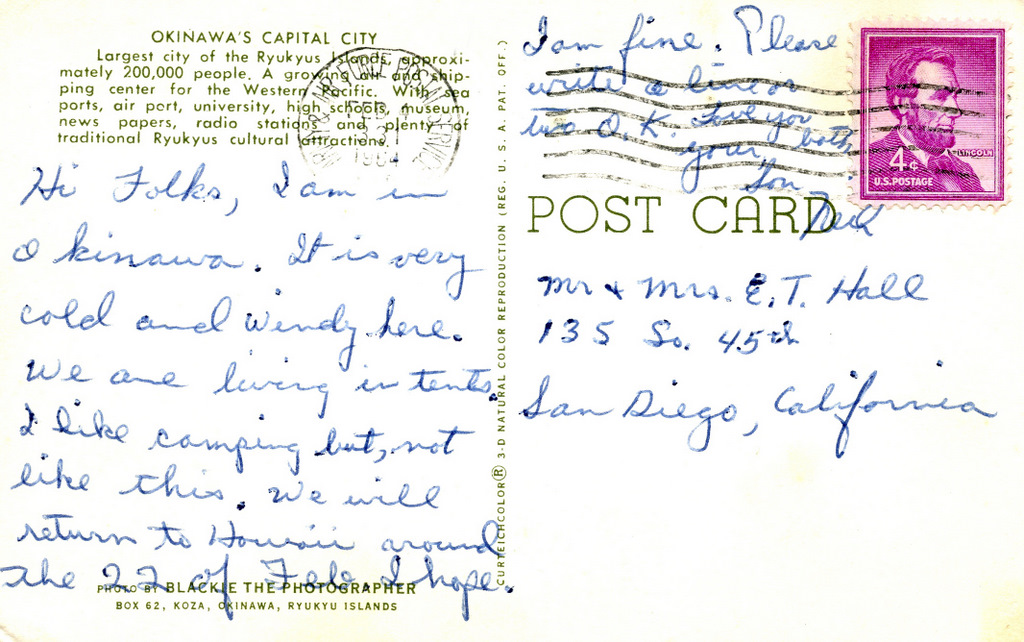 OKINAWA'S CAPITAL CITY
Largest city of the Ryukyus Islands, approxi-
mately 200,000 people. A growing air and ship-
ping center for the Western Pacific. With sea
ports, air port, university, high schools, museum,
news papers, radio stations and plenty of
traditional Ryukyus cultural attractions.
Hi Folks, I am in
Okinawa. It is very
cold and windy here.
We are living in tents.
I like camping but, not
like this. We will
return to Hawaii around
the 22 of Feb. I hope.
PHOTO BY BLACKIE THE PHOTOGRAPHER
BOX 62, KOZA, OKINAWA, RYUKYU ISLANDS
CURTEICHCOLOR® 3-D NATURAL COLOR REPRODUCTION (REG. U. S. A. PAT. OFF.)
I am fine. Please
write a line or
two O.K. Love you
both
your
Son
POST CARD
Mr & Mrs. E. T. Hall
135 So. 45th
San Diego, California
1964
LINCOLN
4¢
U.S. POSTAGE